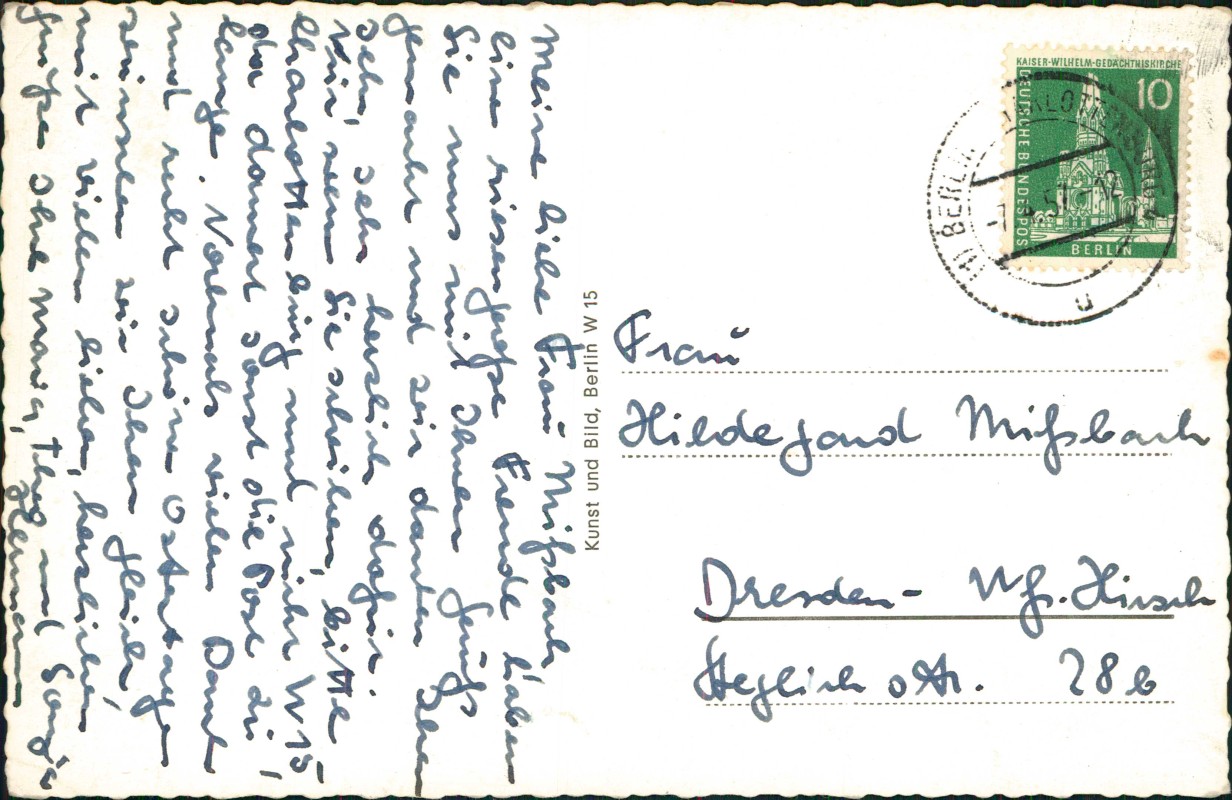 Meine liebe Frau Mißbach,
eine riesengroße Freude haben
Sie uns mit Ihrem Gruß
gemacht und wir danken Ihnen
sehr, sehr herzlich dafür.
Wir, wenn Sie schreiben, bitte
Charlottenburg und nicht W 15
da dauert sonst die Post zu
lange. Nochmals vielen Dank
und recht schöne Ostertage
wünschen wir Ihnen gleich,
mit vielen lieben, herzlichen
Grüßen Ihre Maria, und Sonja
Hermann
Kunst und Bild, Berlin W 15
KAISER-WILHELM-GEDÄCHTNISKIRCHE
10
DEUTSCHE BUNDESPOST
BERLIN
BERLIN CHARLOTTENBURG
57.-12
u
Frau
Hildegard Mißbach
Dresden- Wß. Hirsch
Steglichstr. 28 b